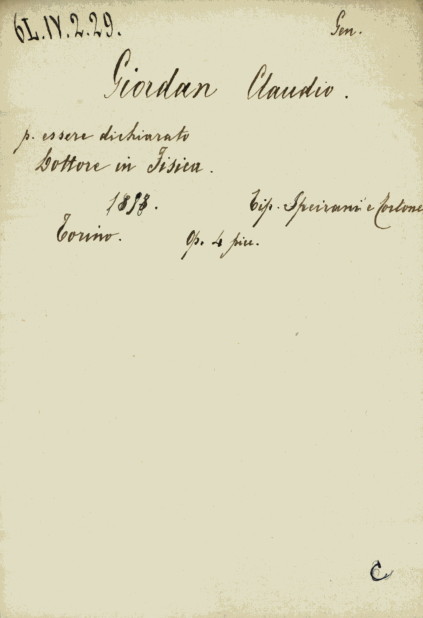 6L.IV.2.29.
Gen.
Giordan Claudio.
p. essere dichiarato
Dottore in Fisica.
Tip. Speirani e
Torino. op. 4 picc.
C